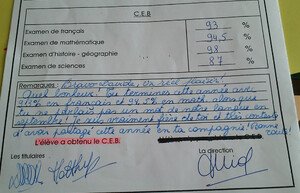 C.E.B
Examen de français 93 %
Examen de mathématique 94,5 %
Examen d'histoire - géographie 98 %
Examen de sciences 87 %
Remarques: Bravo Un réel plaisir!
Quel bonheur! Tu termines cette année avec
93% en français et 94,5% en math alors que
tu ne parlais pas un mot de notre langue en
septembre! Je suis vraiment fière de toi et très contente
d'avoir partagé cette année en ta compagnie! Bonne
route!
L'élève a obtenu le C.E.B.
Les titulaires
La direction